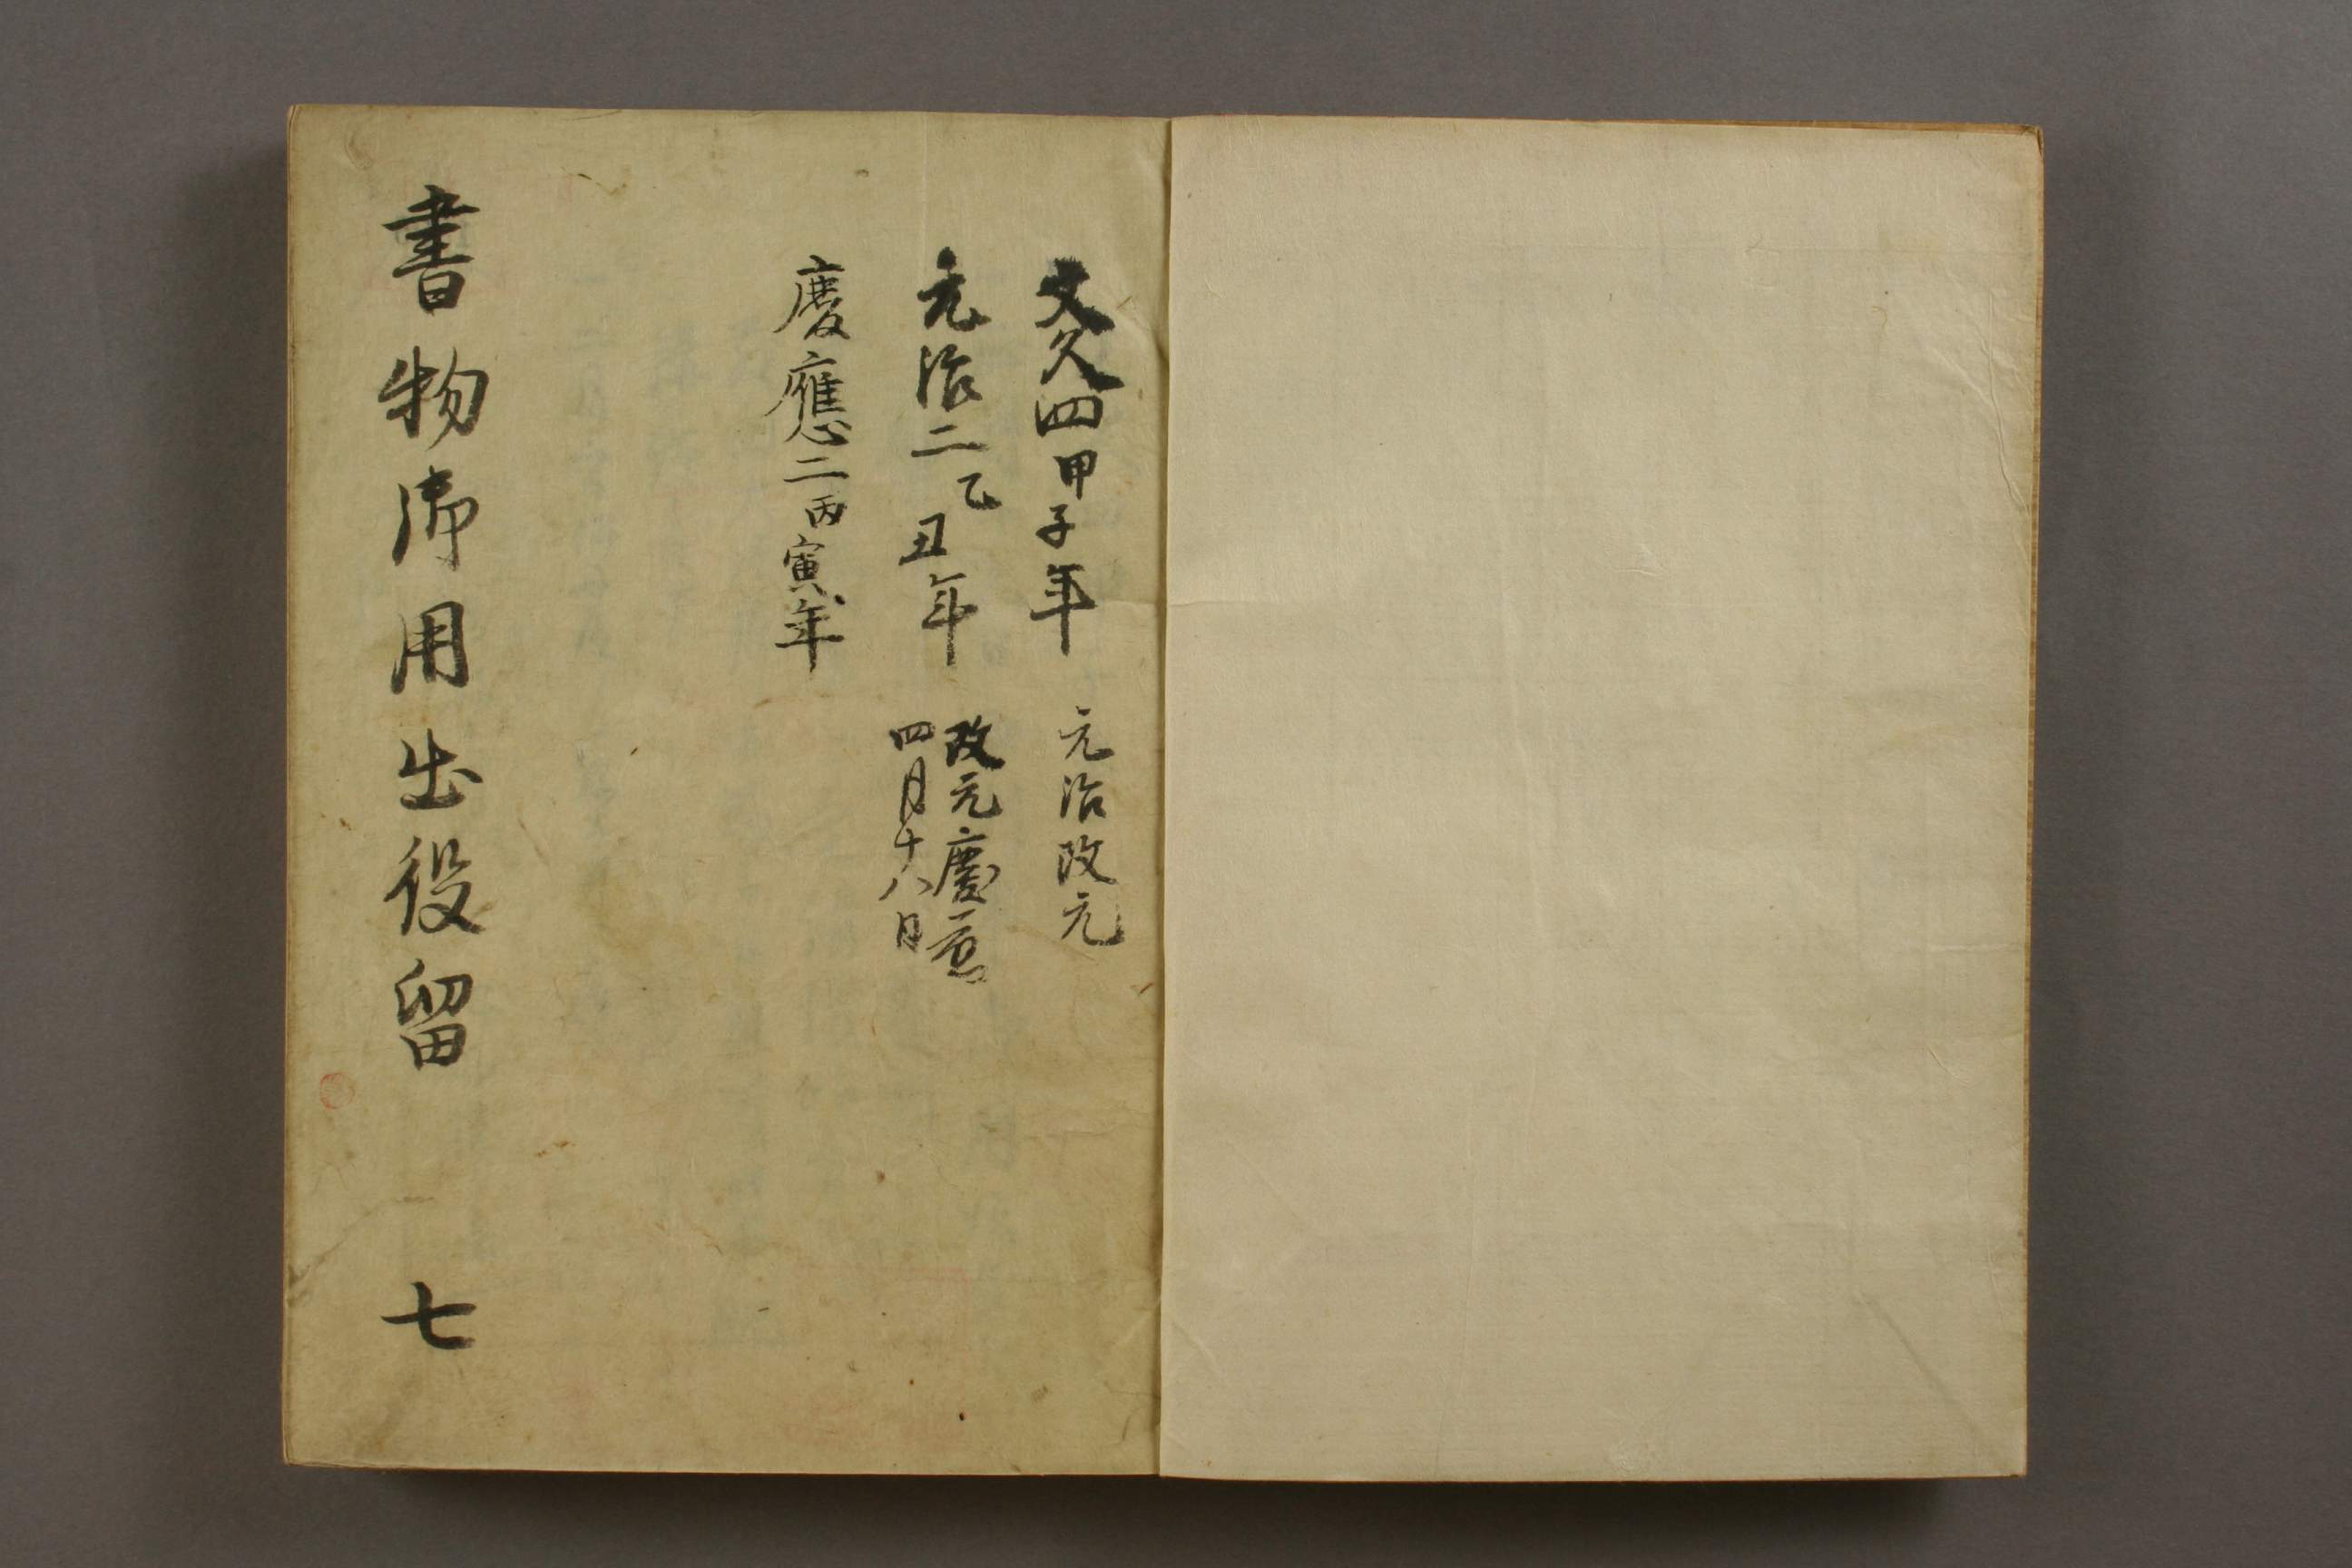 文久四甲子年 元治改元
元治二乙丑年 改元慶應
四月十八日
慶應二丙寅年
書物御用出役留 七